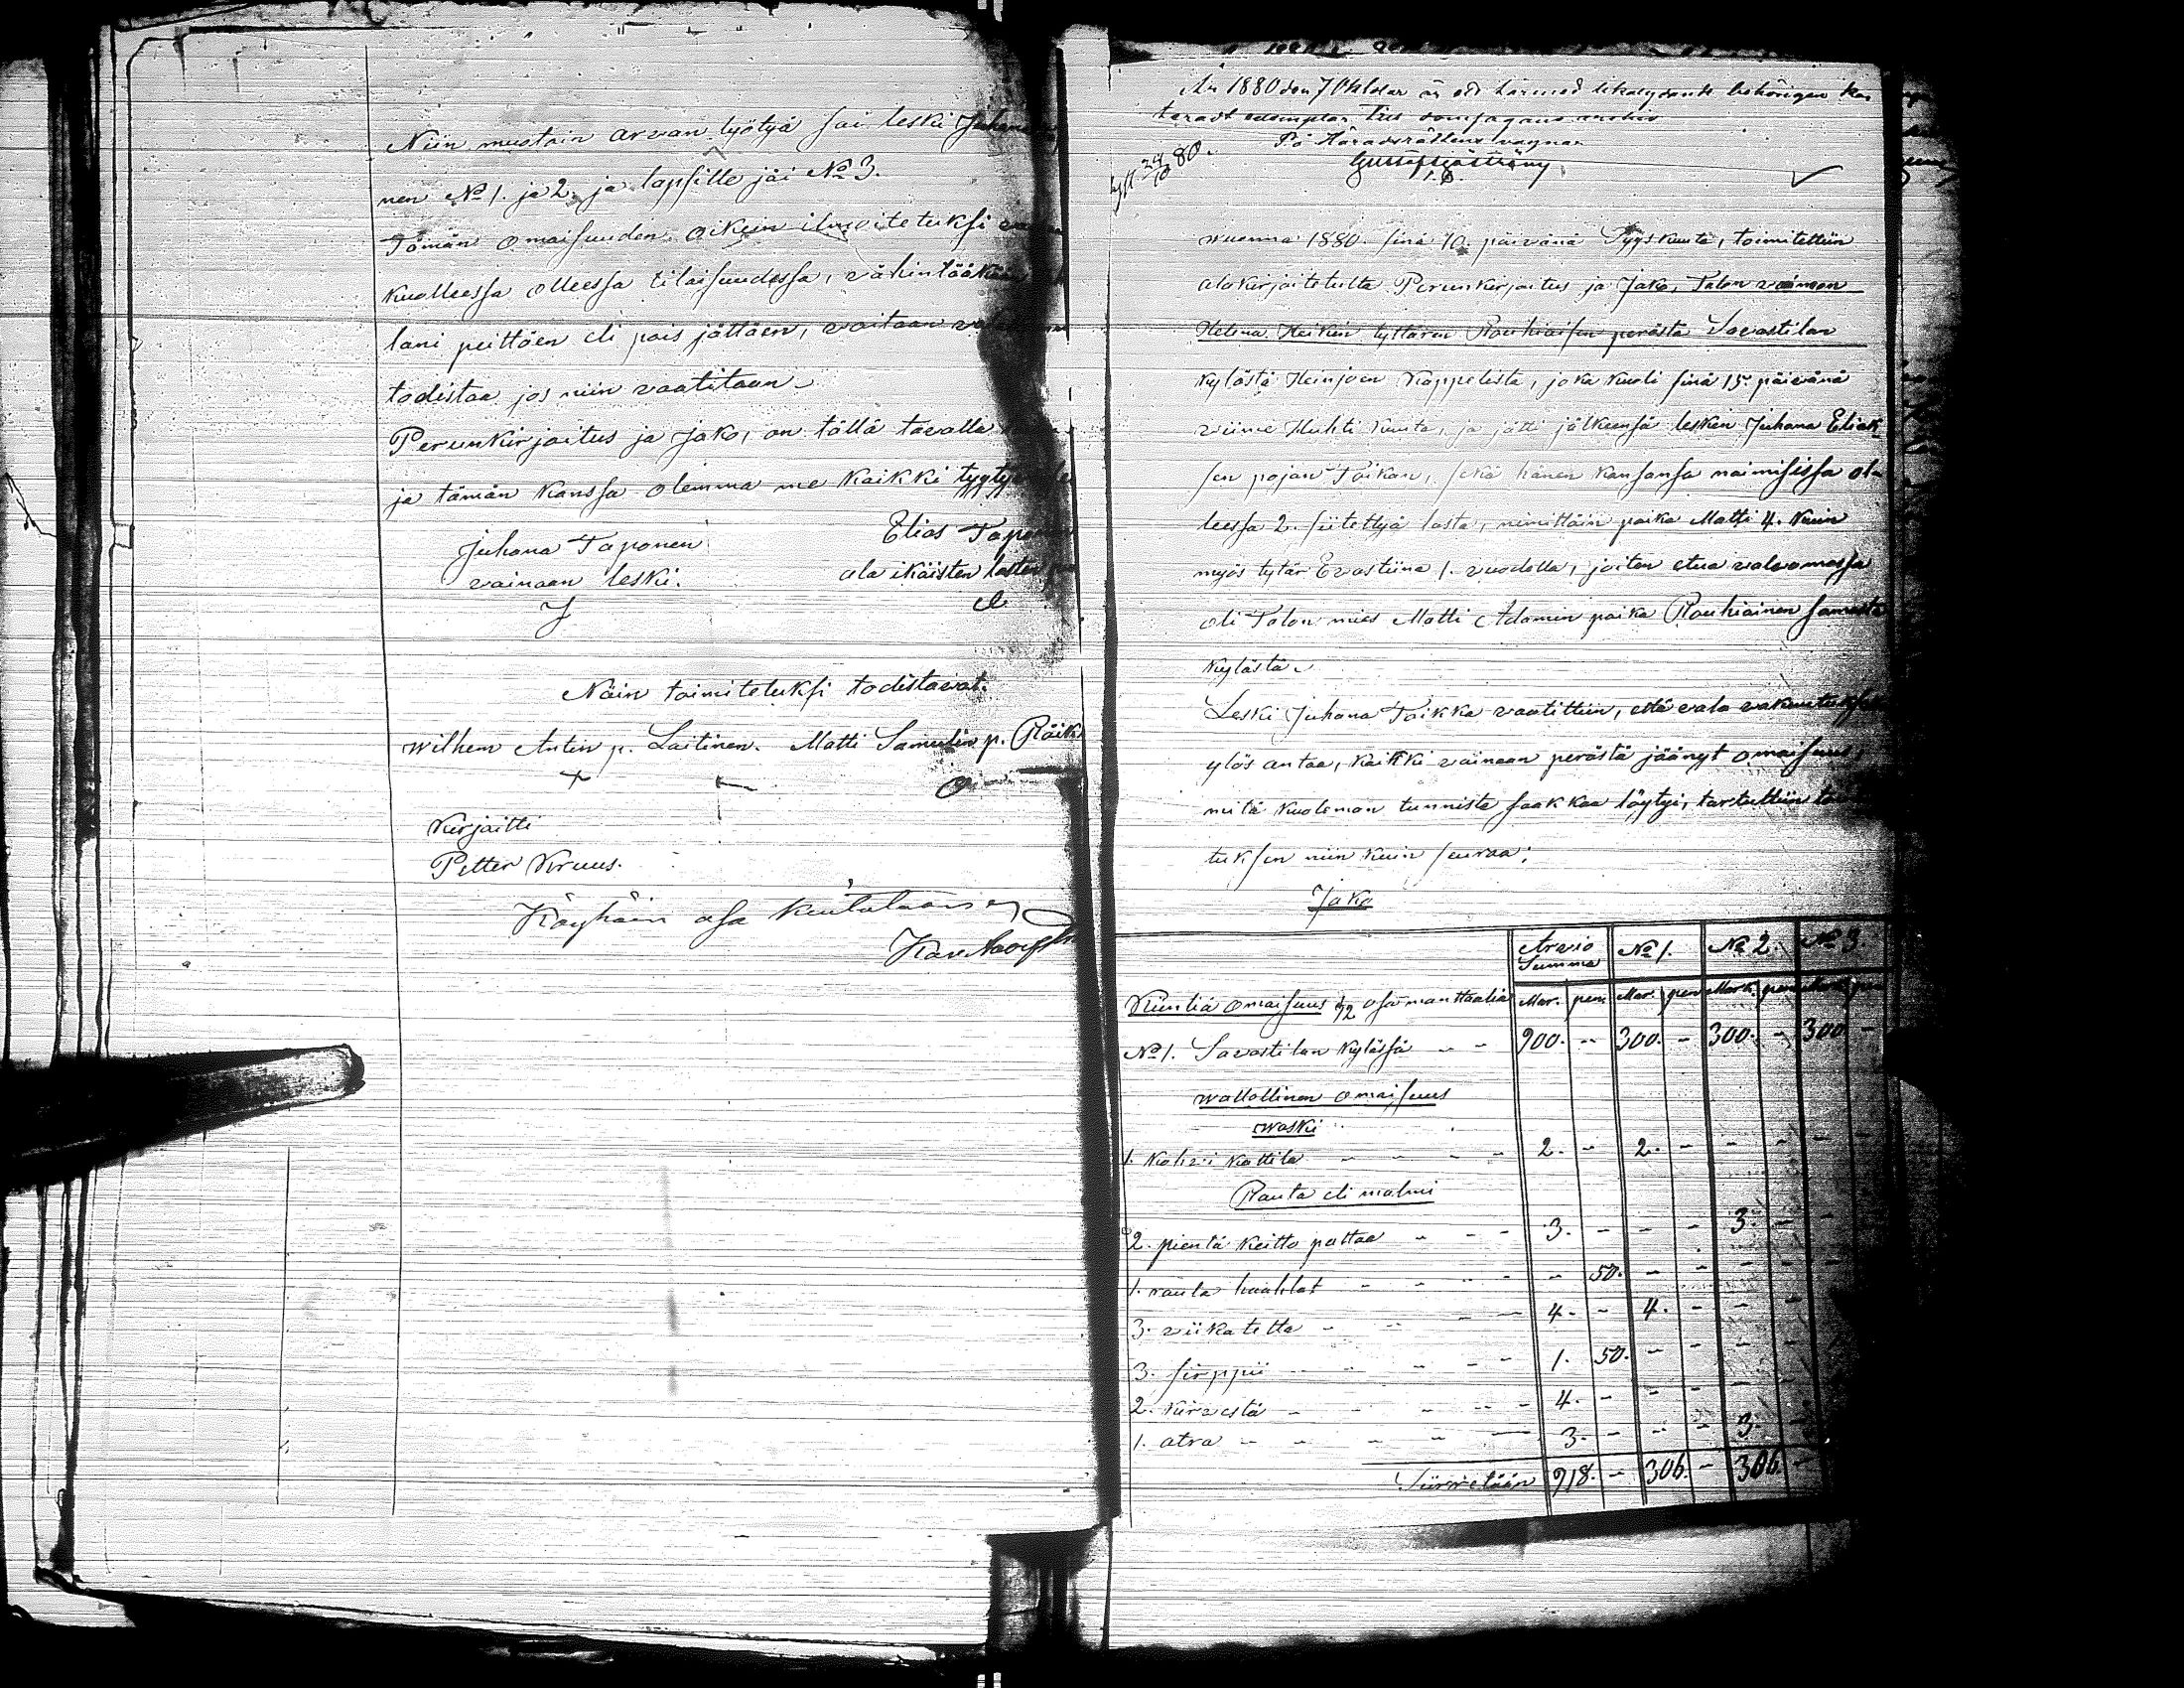 Niin muotoin arvan lyötyä sai leski Juhana
nen No 1. ja 2. ja lapsille jäi No 3.
Tämän omaisuuden oikein ilmoitetuksi
kuolleessa olleessa tilaisuudessa, vähintääkään
lani peittäen eli pois jättäen, voitaan
todistaa jos niin vaatitaan
Perunkirjoitus ja jako, on tällä tavalla
ja tämän kanssa olemma me kaikki
Juhana Taponen
vainaan leski.
J
Elias Taponen
ala ikäisten lasten
E
Näin toimitetuksi todistavat.
Wilhem Antin p. Laitinen. Matti Samulin p. Räik
Kirjoitti
Petter Kruus.
Köyhäin osa
År 1880 den 7 Oktober är ett härmed likalydande behörigen kar
teradt exemplar
På Häradsrättens vägnar
Gustaf Sjöström
24/10 80.
wuonna 1880. sinä 10. päivänä Syyskuuta, toimitettiin
alakirjoitetulta Perunkirjoitus ja Jako, Talon vaimon
Helena Heikin tyttären Rouhiaisen perästä Savastilan
kylästä Heinjoen Kappelista, joka kuoli sinä 15. päivänä
viime Huhti kuuta, ja jätti jälkeensä lesken Juhana Eliak
sen pojan Toikan, sekä hänen kanssansa naimisissa ol-
leessa 2. siitettyä lasta, nimittäin poika Matti 4. kuin
myös tytär Evastiina 1. vuodella, joiten etua valvomassa
oli Talon mies Matti Adamin poika Rouhiainen samasta
kylästä
Leski Juhana Toikka vaatittiin, että vala vakuutuksen
ylös antaa, kaikki vainaan perästä jäänyt omaisuus
mitä kuoleman tunnista saakkaa löytyi, tartuttiin
tuksen niin kuin seuraa;
Jako
Arvio Summa No 1. No 2. No 3
Kiintiä omaisuus 1/12 osa manttaalia Mar. pen. Mar. pen Mark. pen
No 1. Savastilan kylässä - - 900. - 300. - 300. - 300 -
wallallinen omaisuus
waski
1. kahvi kattila - - - - 2. - 2. - - - - -
Rauta eli malmi
2. pientä keitto pattaa - - - 3. - - - 3. - -
1. rauta - - - - - 50. - - - - -
3. viikatetta - - - - 4. - 4. - - - -
3. sirppii - - - - 1. 50. - - - -
2. kirvestä - - - - 4. - - - - -
1. atra - - - - - 3. - - - 3. -
Siirretään 918. - 306. - 306. -